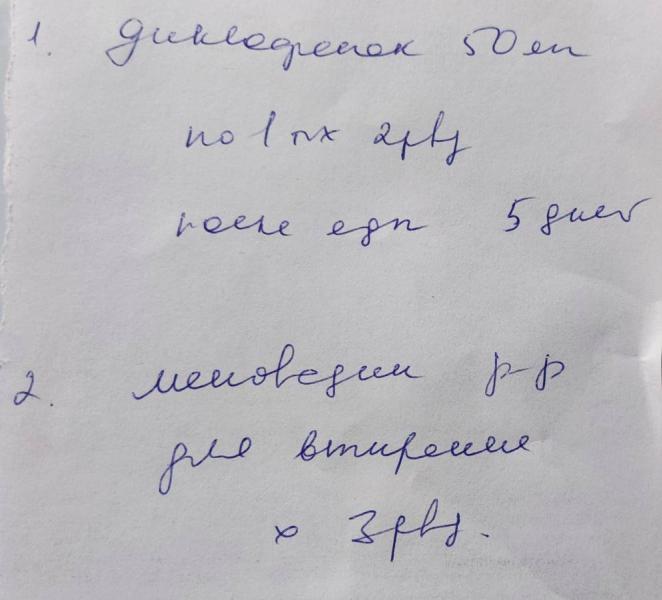 1. Диклофенак 50 мг
по 1 т х 2 р в д
после еды 5 дней
2. меновазин р-р
для втирания
х 3 р в д.